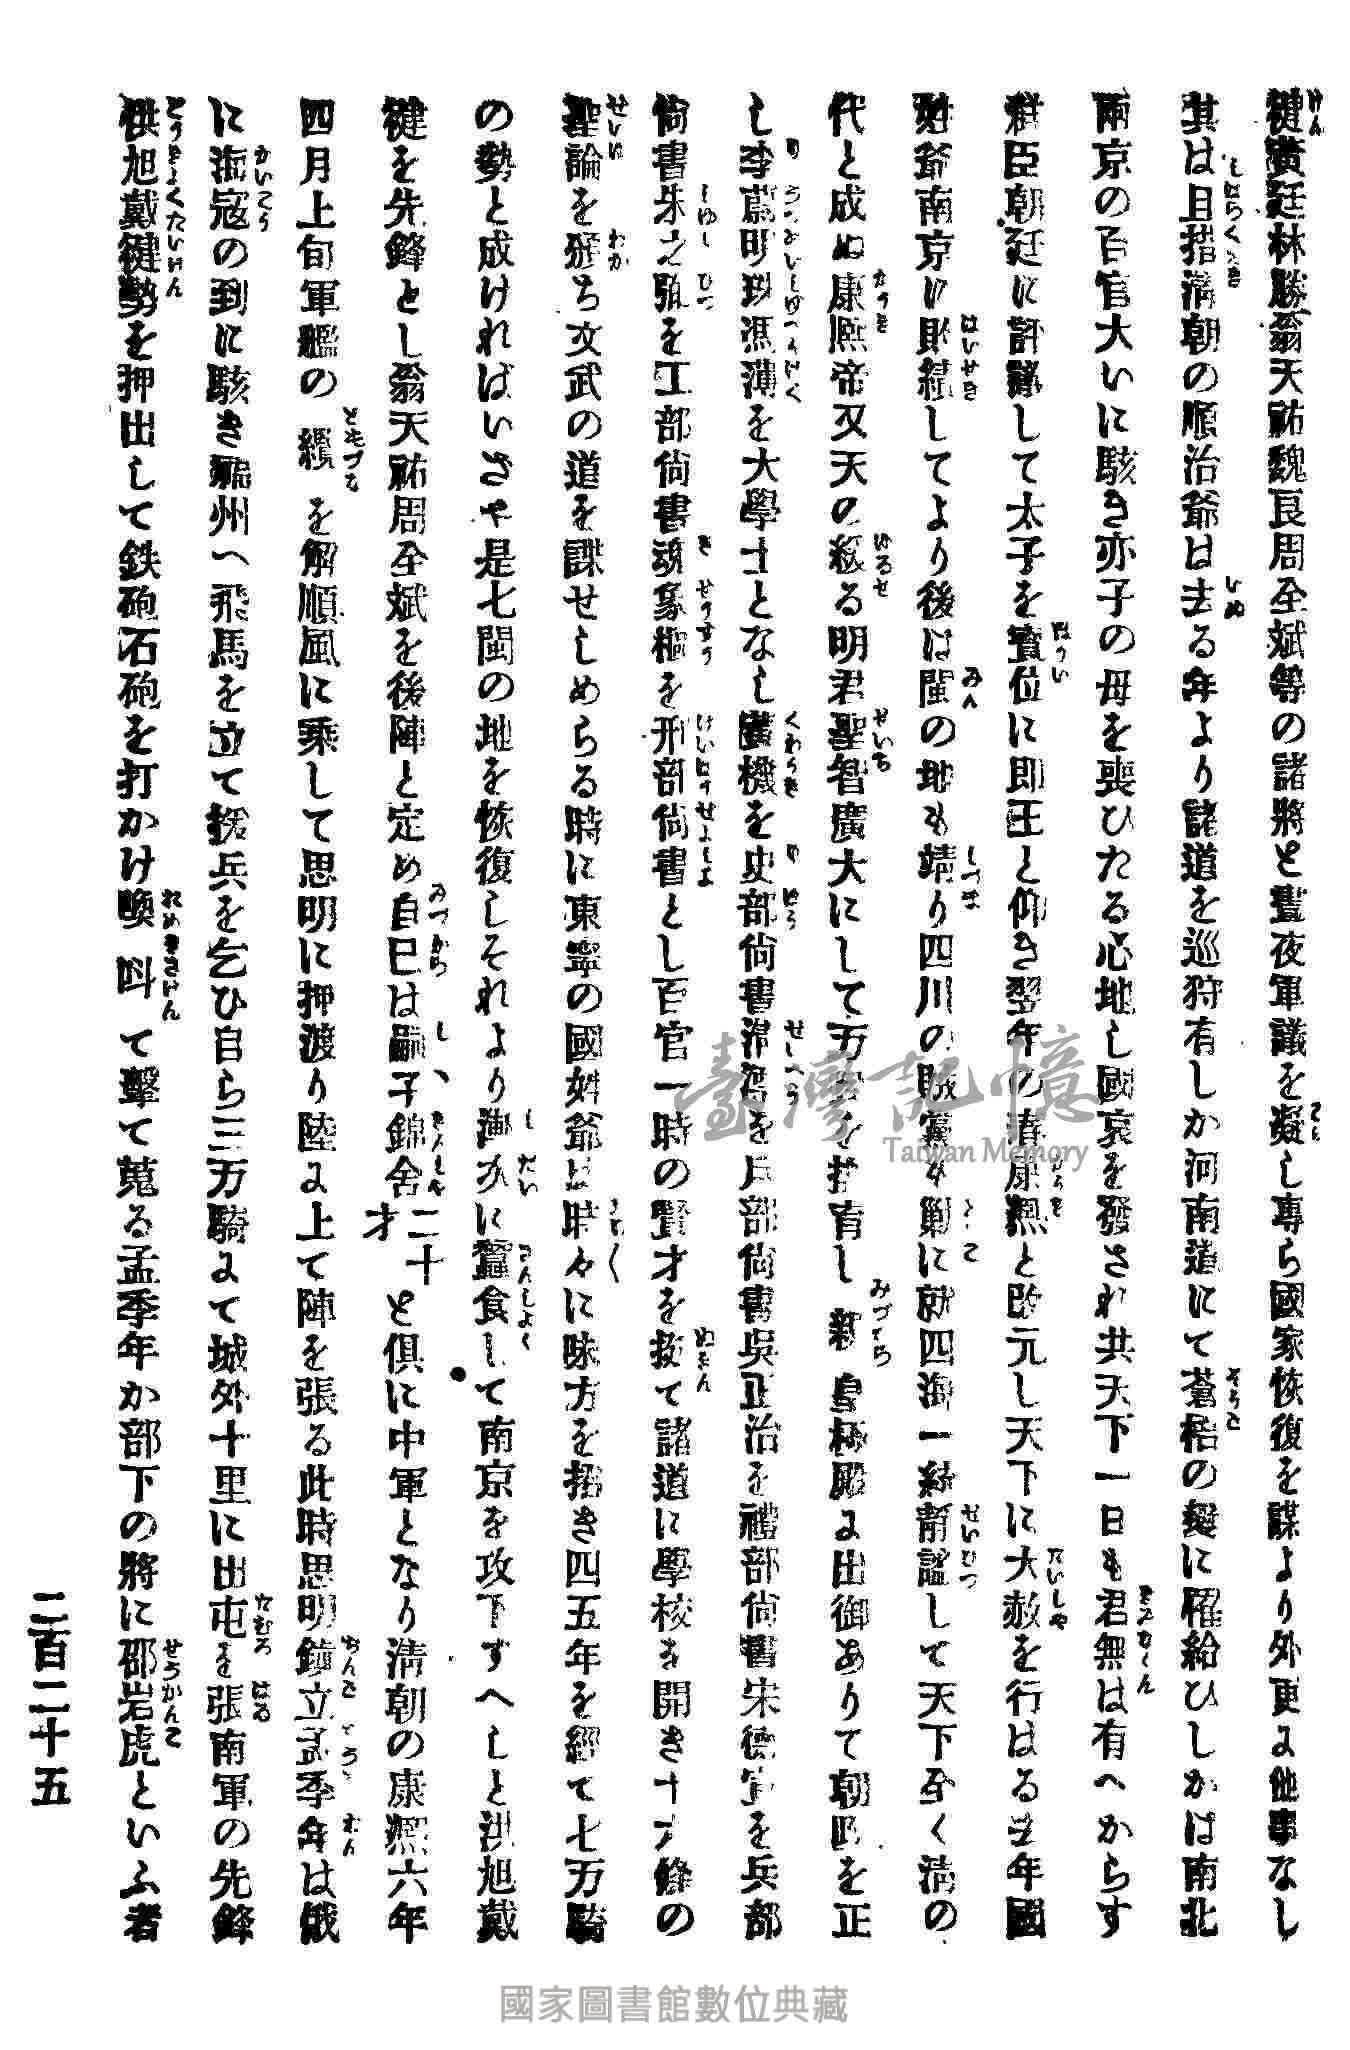 健黃廷林勝翁天祐魏良周全斌等の諸將と晝夜軍議を凝し專ら國家恢復を謀より外更よ他事なし
其は且措淸朝の順治爺は去る年より諸道を巡狩有しか河南道にて蒼梧の　に　給ひしかは南北
兩京の百官大いに駭き亦子の母を喪ひたる心地し國哀を發され共天下一日も君無は有へからす
群臣朝廷に評議して太子を寶位に即王と仰き翌年の春康熙と改元し天下に大赦を行はる去年國
姓爺南京に敗績してより後は閩の地も靖り四川の賊黨も　に就四海一統靜謐して天下全く淸の
代と成ぬ康熙帝又天の縦る明君聖智廣大にして万　を　有し新　皇極殿よ出御ありて朝政を正
し李蔚明珠馮溥を大學士となし黃機を史部尙書　　を戶部尙書吳正治を禮部尙書宋德宜を兵部
尙書朱之弼を工部尙書　象樞を刑部尙書とし百官一時の賢才を拔て諸道に學校を開き十六條の
聖論を頒ち文武の道を課せしめらる時に東寧の國姓爺は時々に味方を招き四五年を經て七万騎
の勢と成けれはいさや是七閩の地を恢復しそれより漸次に蠶食して南京を攻下すへしと洪旭戴
健を先鋒とし翁天祐周全斌を後陣と定め自巳は嗣子錦舍二十才と俱に中軍となり淸朝の康熙六年
四月上旬軍艦の纜を解順風に乘して思明に押渡り陸よ上て陣を張る此時思明鎭立孟季年は俄
に海寇の到に駭き福州へ飛馬を立て援兵を乞ひ自ら三万騎よて城外十里に出屯を張南軍の先鋒
洪旭戴健勢を押出して鉄砲石砲を打かけ喚叫て擊て蒐る孟季年か部下の將に邵岩虎といふ者
二百二十五
臺灣記憶
Taiwan Memory
國家圖書館數位典藏